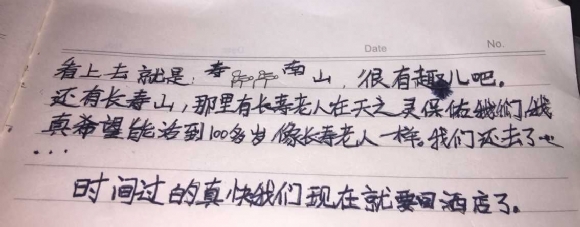 Date
No.
看上去就是:寿 南山,很有趣儿吧。
还有长寿山,那里有长寿老人在天之灵保佑我们我
真希望能活到100多岁像长寿老人一样。我们还去了
...
时间过的真快我们现在就要回酒店了。